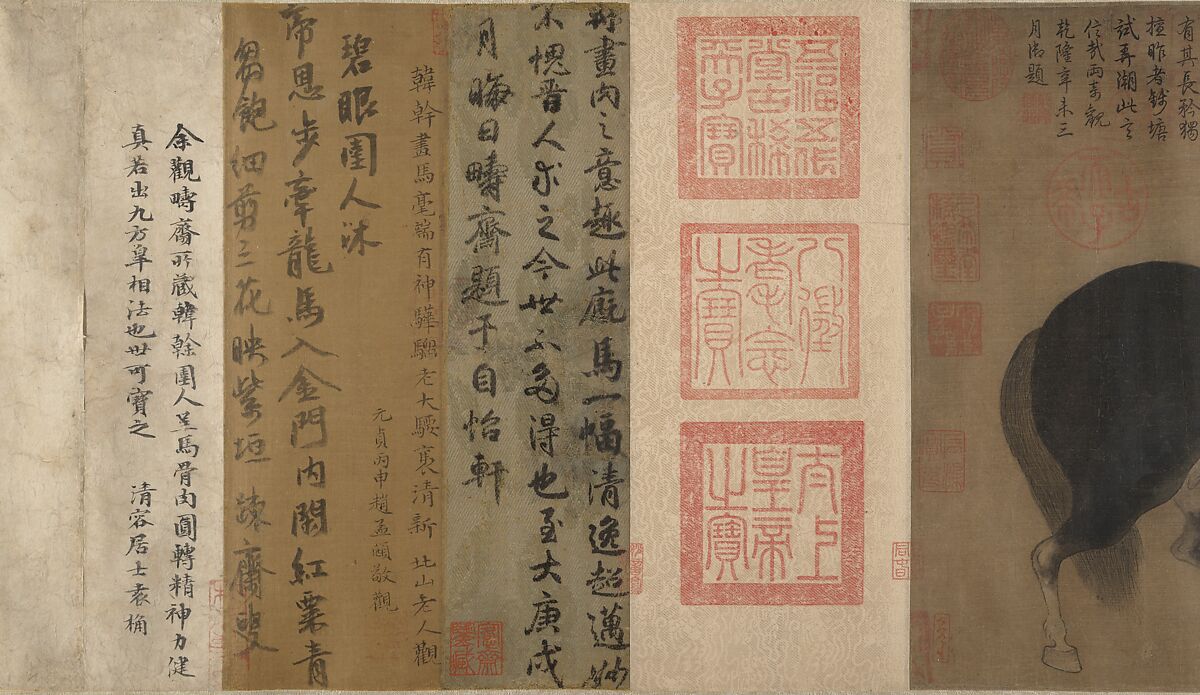 有其長矜獨
擅昨者錢塘
試再潮此言
信哉兩
乾隆辛未三
月御題
五福五代
堂古稀天
子寶
八徵
耄念
之寶
太上
皇帝
之寶
畫內之意趣此廐馬一幅清逸超邁
不愧晉人求之今世不多得也至大庚戌
月晦日疇齋題于自怡軒
韓幹畫馬毫端有神驊騮老大騕褭清新 北山老人觀
元貞丙申趙孟頫敬觀
碧眼圉人沐
帝恩步牽龍馬入金門內閑紅粟青
芻飽細剪三花映紫垣 疎齋叟
余觀疇齋所藏韓幹圉人呈馬骨肉圓轉精神力健
真若出九方皋相法也世可寶之 清容居士袁桷